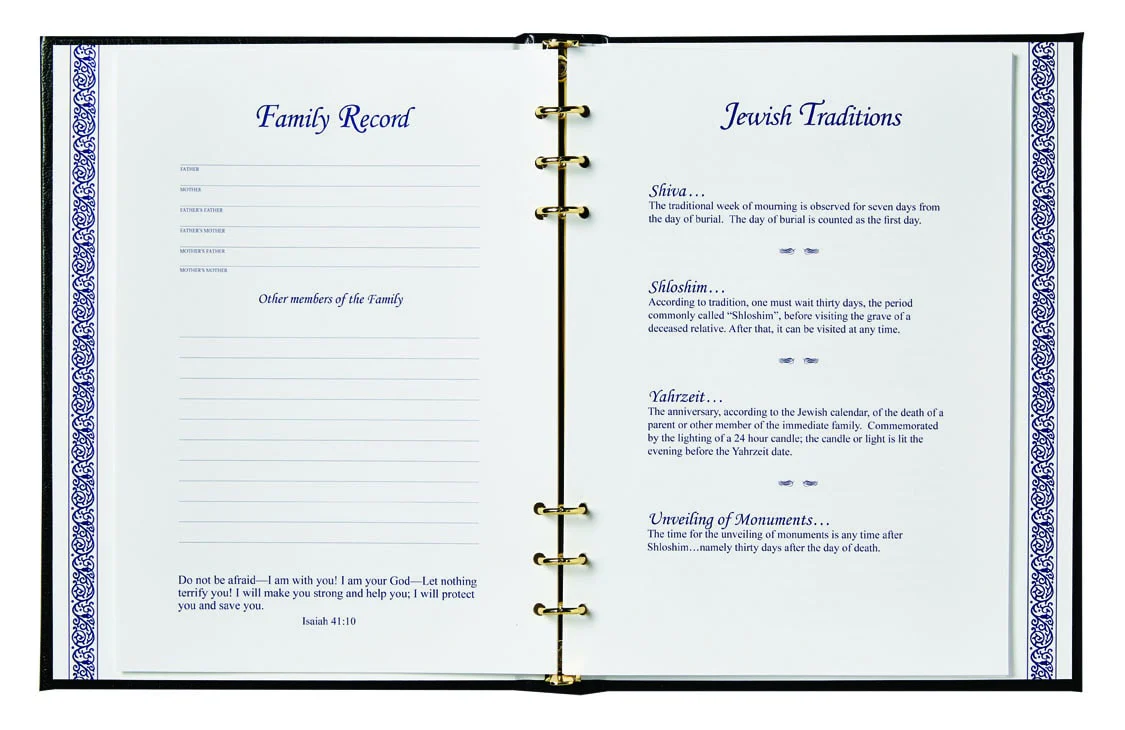 Family Record
FATHER
MOTHER
FATHER'S FATHER
FATHER'S MOTHER
MOTHER'S FATHER
MOTHER'S MOTHER
Other members of the Family
Do not be afraid—I am with you! I am your God—Let nothing
terrify you! I will make you strong and help you; I will protect
you and save you.
Isaiah 41:10
Jewish Traditions
Shiva…
The traditional week of mourning is observed for seven days from
the day of burial.  The day of burial is counted as the first day.
Shloshim…
According to tradition, one must wait thirty days, the period
commonly called “Shloshim”, before visiting the grave of a
deceased relative. After that, it can be visited at any time.
Yahrzeit…
The anniversary, according to the Jewish calendar, of the death of a
parent or other member of the immediate family.  Commemorated
by the lighting of a 24 hour candle; the candle or light is lit the
evening before the Yahrzeit date.
Unveiling of Monuments…
The time for the unveiling of monuments is any time after
Shloshim…namely thirty days after the day of death.